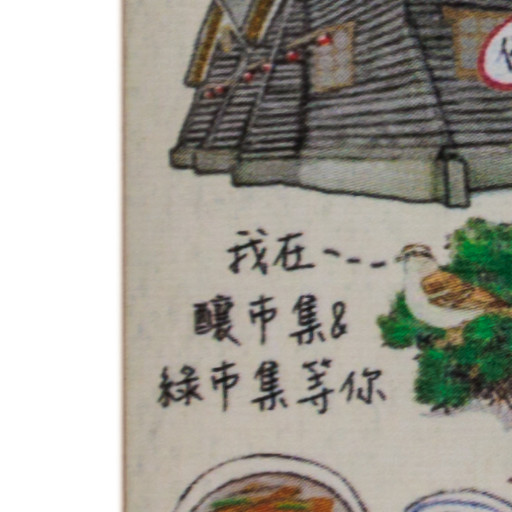 我在
釀市集&
綠市集等你